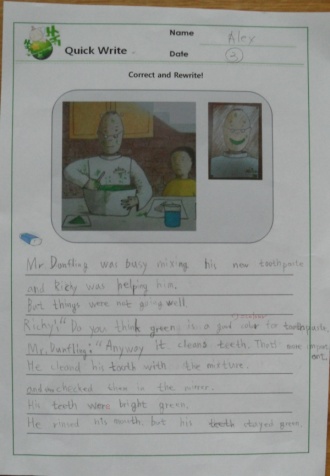 Name Alex
Quick Write
Date 2
Correct and Rewrite!
Mr. was busy mixing his new toothpaste
and Richy was helping him.
But things were not going well.
Richy: "Do you think green is a good color for toothpaste,
Mr. "Anyway it cleans teeth. That's more important.
He cleand his tooth with the mixture.
and checked them in the mirror.
His teeth were bright green.
He rinsed his mouth, but his teeth stayed green.